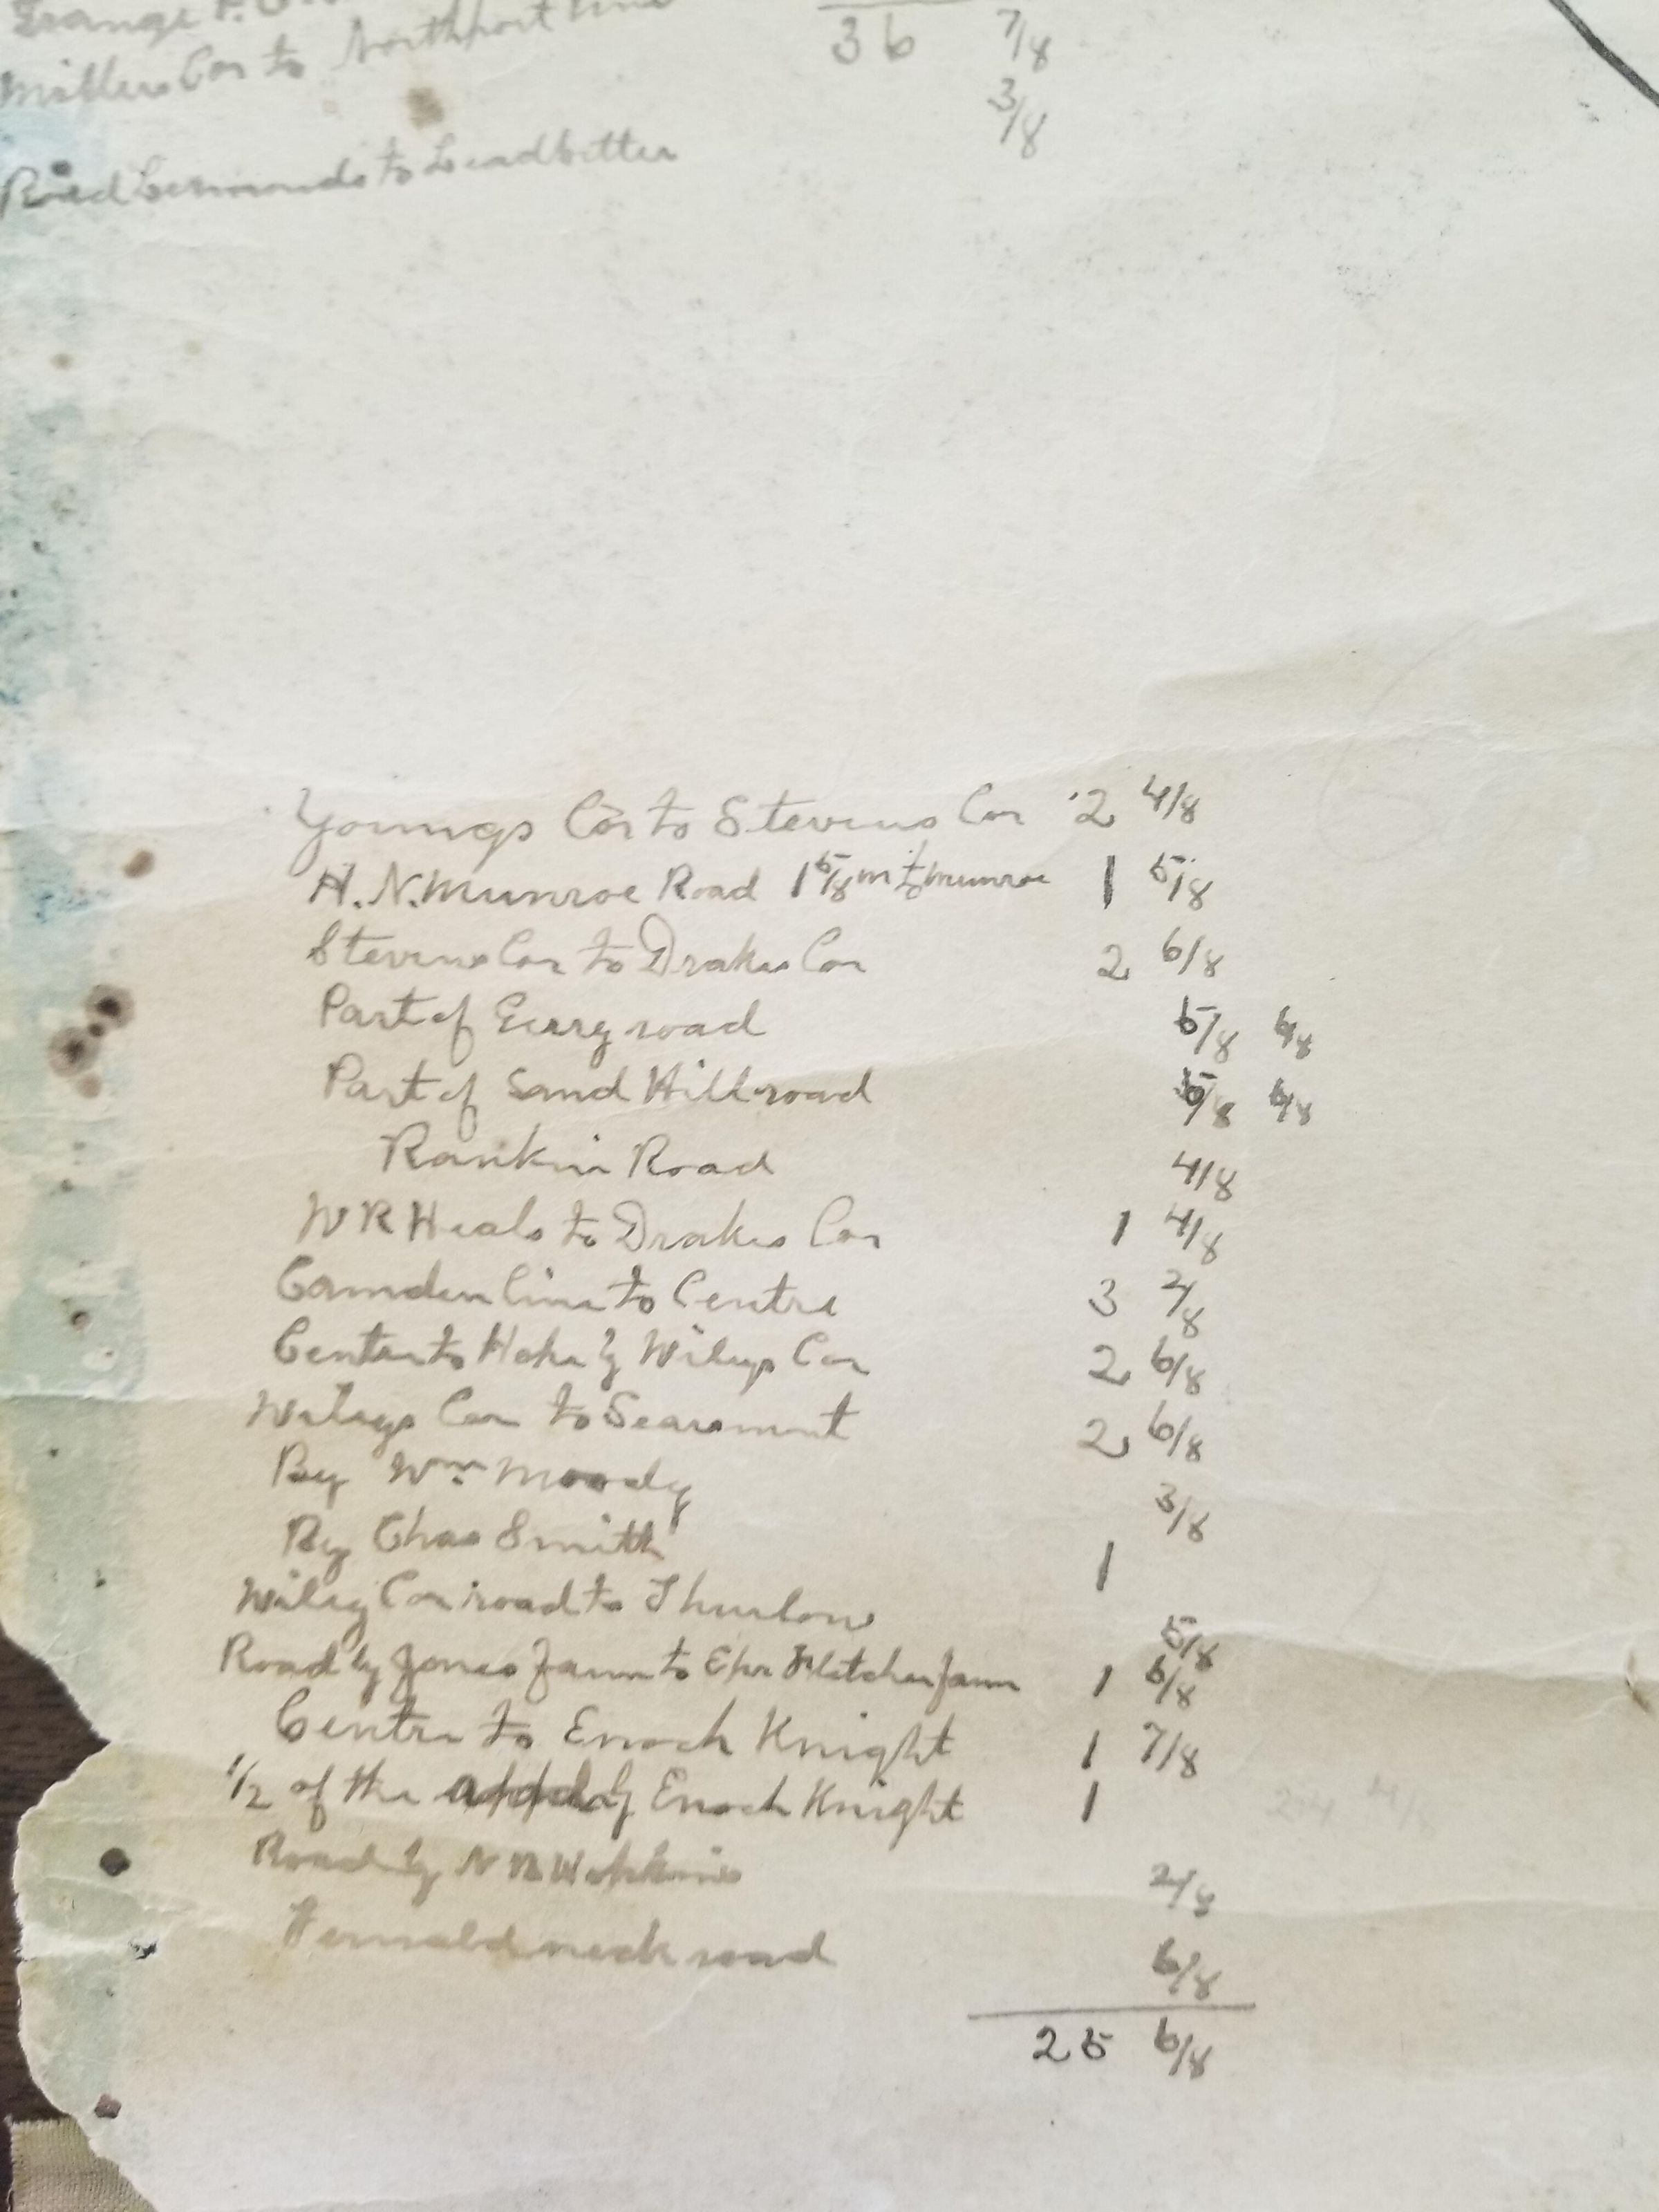 Grange
36 7/8
Millers Cor to Northport line 3/8
Road Lermonds to Leadbetter
Youngs Cor to Stevens Cor 2 4/8
H. N. Munroe Road 1 5/8 m to Munroe 1 5/8
Stevens Cor to Drakes Cor 2 6/8
Part of road 5/8 6/8
Part of Sand Hill road 5/8 6/8
Rankin Road 4/8
W R Heals to Drakes Cor 1 4/8
Camden line to Centre 3 2/8
Center to Hope by Wileys Cor 2 6/8
Wileys Cor to Searsmont 2 6/8
By Wm Moody 3/8
By Chas Smith 1
Wiley Cor road to Thurlow 5/8
Road by Jones farm to Fletcher farm 1 6/8
Centre to Enoch Knight 1 7/8
1/2 of the by Enoch Knight 1
24 4/8
Road by N 2/8
Fernald neck road 6/8
25 6/8